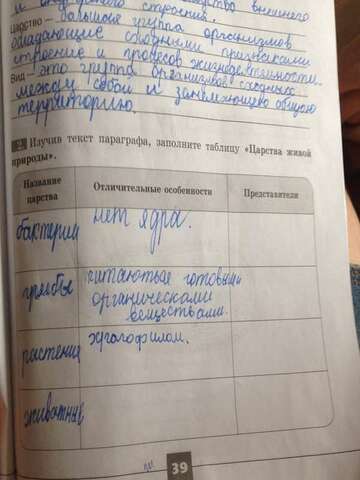 и внутреннего строения.
Царство – большая группа организмов
обладающие сходными признаками
строение и процесов жизнедеятельности.
Вид – это группа организмов сходных
между собой и занемающего общую
территорию.
Изучив текст параграфа, заполните таблицу «Царства живой
природы».
Название царства Отличительные особенности Представители
бактерии нет ядра.
грибы питаються готовыми
органическами
веществами.
растения хролофилом.
животные
39